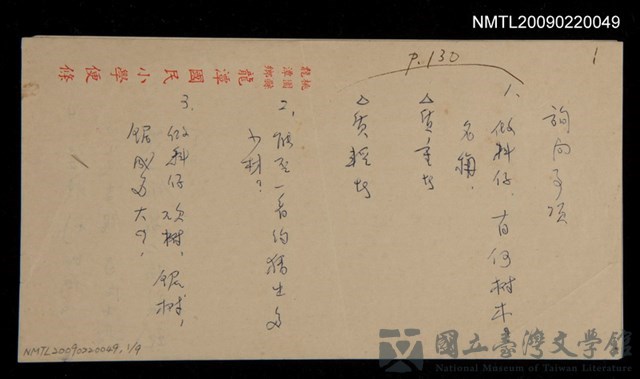 NMTL20090220049
1
p.130
詢問事項
1. 做料仔,有何树木
名稱,
△質重者
△質輕者
2、
一看約積生多
少材?
3、做料仔砍樹,鋸樹,
鋸成多大?,
桃園縣
龍潭鄉
龍潭國民小學便條
NMTL20090220049, 1/9
國立臺灣文學館
National Museum of Taiwan Literature